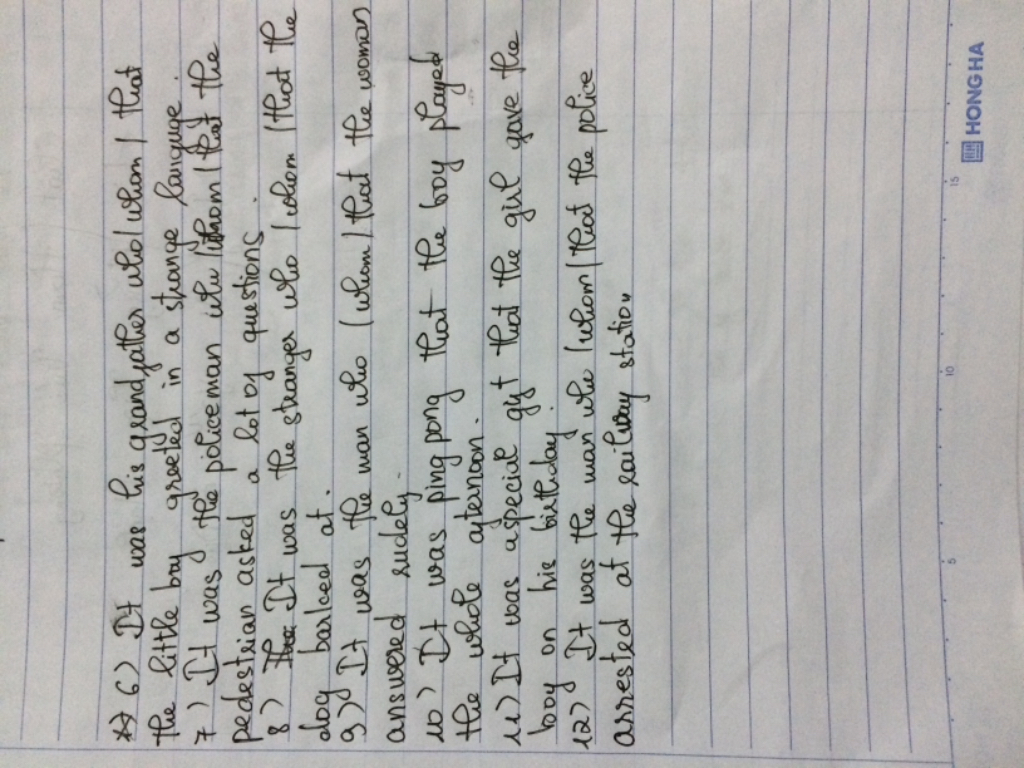 6) It was his grandfather who/whom/that
the little boy greeted in a strange languge.
7) It was the policeman who/whom/that the
pedestrian asked a lot of questions.
8) It was the stranger who/whom/that the
dog barked at.
9) It was the man who/whom/that the woman
answered rudely.
10) It was ping pong that the boy played
the whole afternoon.
11) It was a special gift that the girl gave the
boy on his birthday.
12) It was the man who/whom/that the police
arrested at the railway station
5 10 15
HONG HA